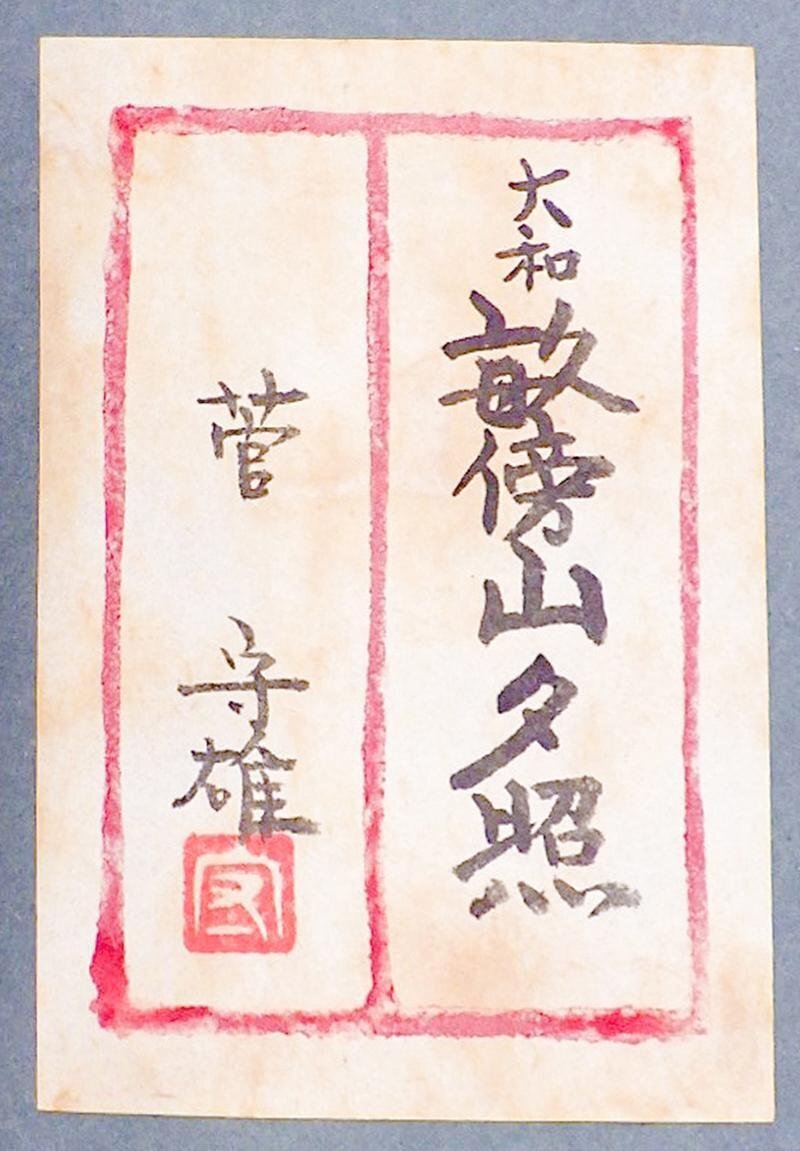 大和
畝傍山夕照
菅 守雄